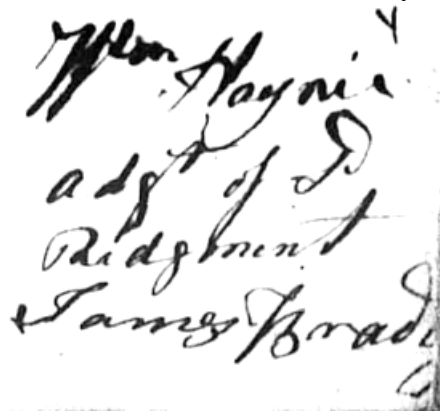 Wm Haynie
adgt of
Ridgment
James Brad